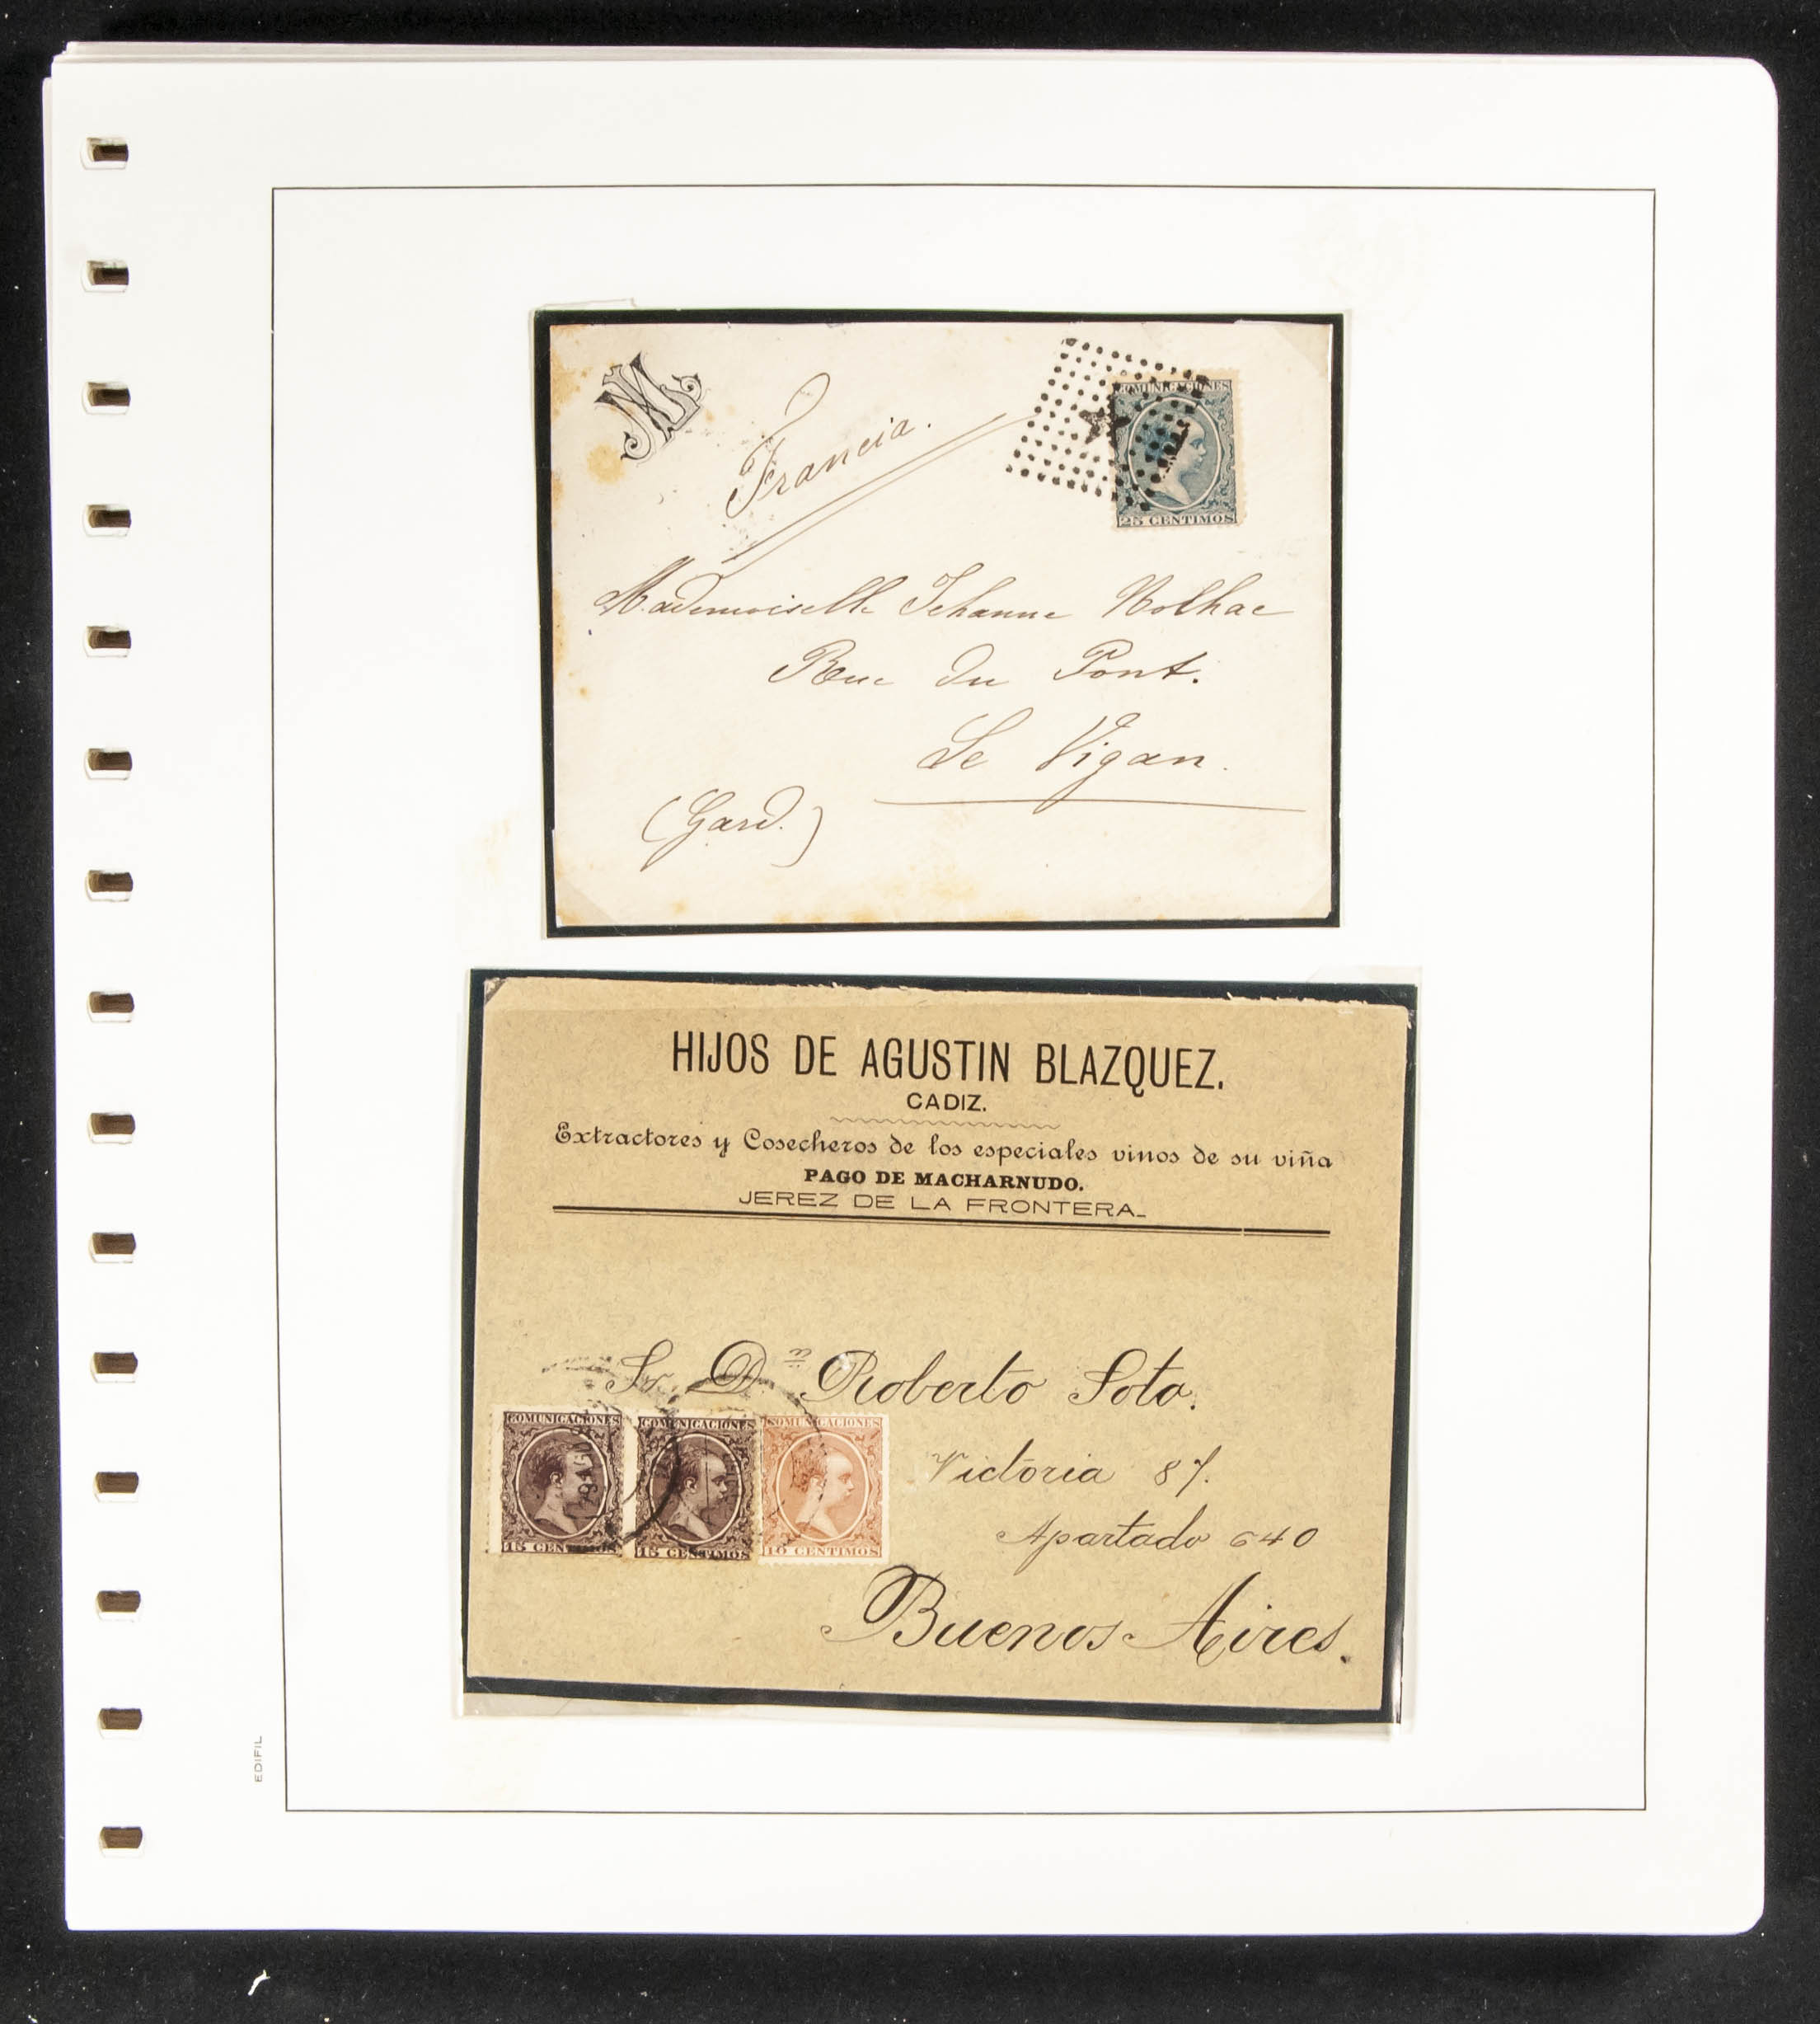 ML
Francia.
COMUNICACIONES
25 CENTIMOS
Mademoiselle Jehanne Nolhac
Rue du Pont.
Le Vigan.
(Gard.)
HIJOS DE AGUSTIN BLAZQUEZ.
CADIZ.
Extractores y Cosecheros de los especiales vinos de su viña
PAGO DE MACHARNUDO.
JEREZ DE LA FRONTERA_
Sr. Dn Roberto Soto.
COMUNICACIONES COMUNICACIONES COMUNICACIONES
15 CENTIMOS 15 CENTIMOS 10 CENTIMOS
Victoria 87.
Apartado 640
Buenos Aires.
EDIFIL